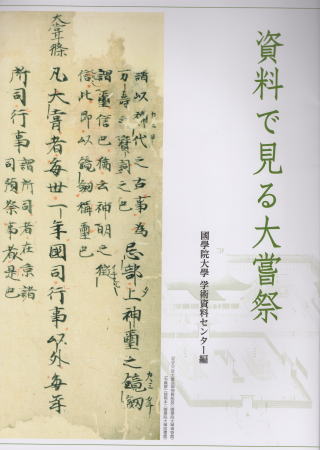 資料で見る大嘗祭
國學院大學 学術資料センター編
謂以神代之古事為
万寿之寶詞也
忌部上神璽之鏡劔
謂璽信也猶云神明之徴
信此即以鏡劔稱璽也
大嘗條
凡大嘗者毎世一年國司行事以外毎年
所司行事
謂所司者在京諸
司預祭事者是也